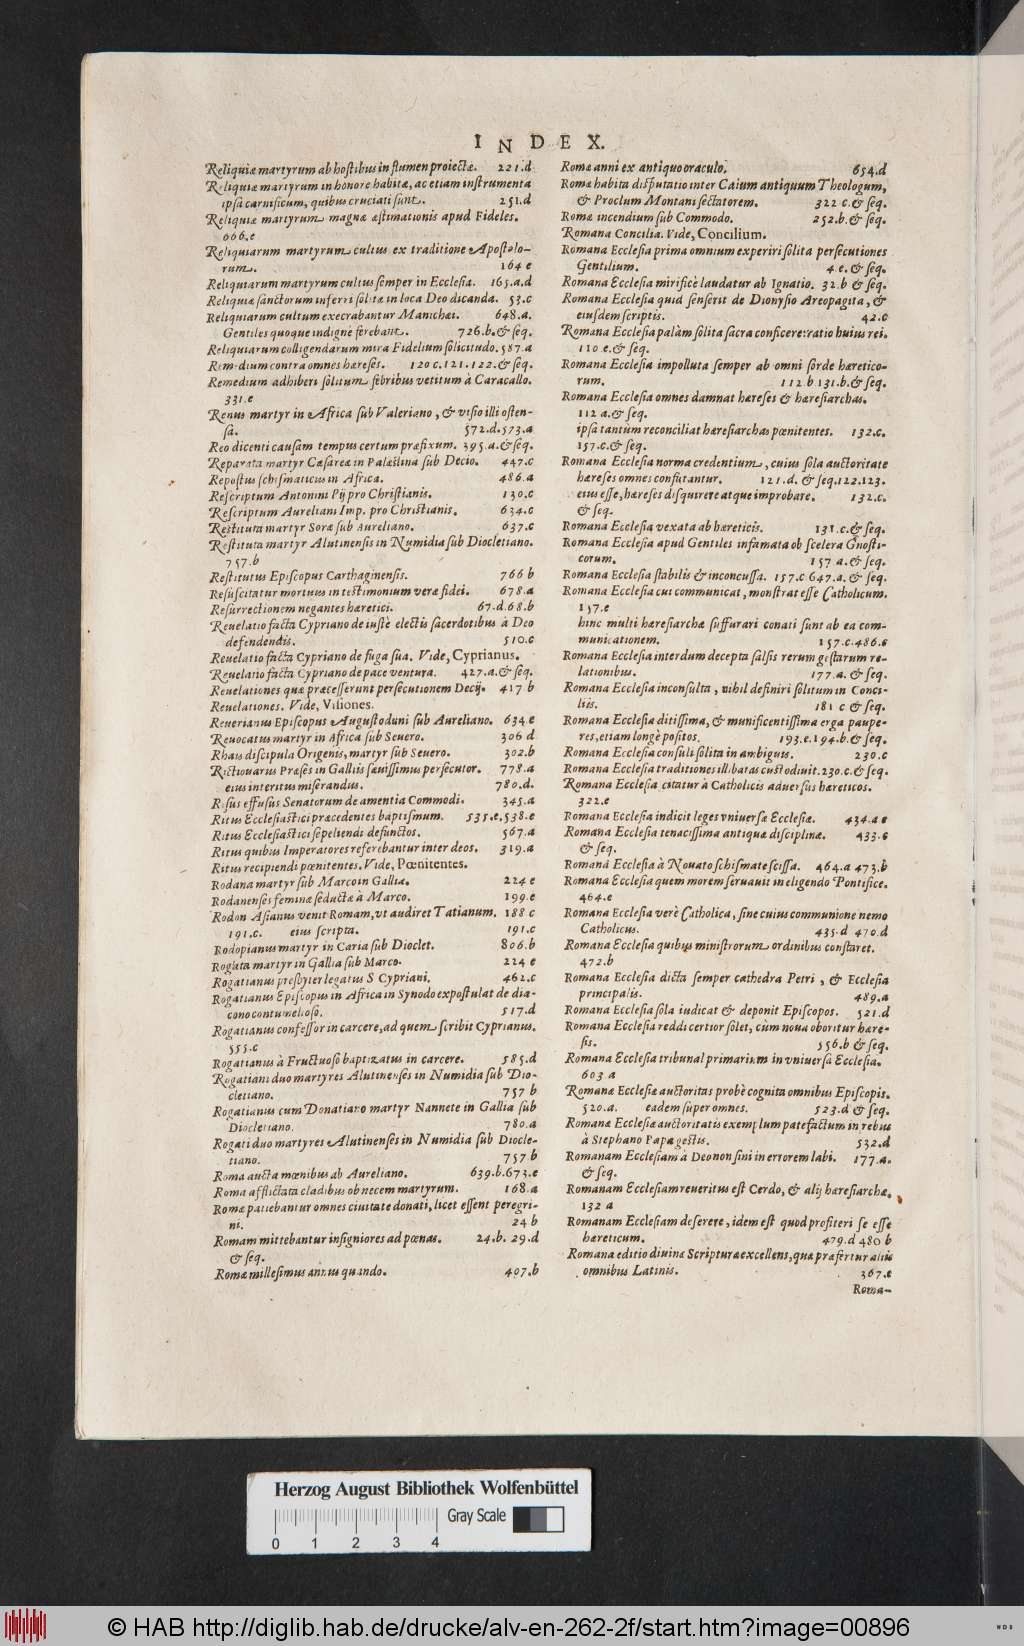 INDEX.
Reliquiæ martyrum ab hostibus in flumen proiectæ. 221.d
Reliquiæ martyrum in honore habitæ, ac etiam instrumenta
ipsa carnificum, quibus cruciati sunt. 251.d
Reliquiæ martyrum magnæ æstimationis apud Fideles.
666.e
Reliquiarum martyrum cultus ex traditione Apostolo-
rum. 164 e
Reliquiarum martyrum cultus semper in Ecclesia. 165.a.d
Reliquiæ sanctorum inferri solitæ in loca Deo dicanda. 53.c
Reliquiarum cultum execrabantur Manichei. 648.a.
Gentiles quoque indignè ferebant. 726.b.& seq.
Reliquiarum colligendarum mira Fidelium solicitudo. 587.a
Remedium contra omnes hæreses. 120 c.121.122.& seq.
Remedium adhiberi solitum febribus vetitum à Caracallo.
331.e
Renus martyr in Africa sub Valeriano, & visio illi osten-
sa. 572.d.573.a
Reo dicenti causam tempus certum præfixum. 395.a.& seq.
Reparata martyr Cæsareæ in Palæstina sub Decio. 447.c
Repostus schismaticus in Africa. 486.a
Rescriptum Antonini Pij pro Christianis. 130.c
Rescriptum Aureliani Imp. pro Christianis. 634.c
Restituta martyr Soræ sub Aureliano. 637.c
Restituta martyr Alutinensis in Numidia sub Diocletiano.
757.b
Restitutus Episcopus Carthaginensis. 766 b
Resuscitatur mortuus in testimonium veræ fidei. 678.a
Resurrectionem negantes hæretici. 67.d.68.b
Reuelatio facta Cypriano de iustè electis sacerdotibus à Deo
defendendis. 510.c
Reuelatio facta Cypriano de fuga sua. Vide, Cyprianus.
Reuelatio facta Cypriano de pace ventura. 427.a.& seq.
Reuelationes quæ præcesserunt persecutionem Decij. 417 b
Reuelationes. Vide, Visiones.
Reuerianus Episcopus Augustoduni sub Aureliano. 634.e
Reuocatus martyr in Africa sub Seuero. 306 d
Rhais discipula Origenis, martyr sub Seuero. 302.b
Rictiouarus Præses in Galliis sæuissimus persecutor. 778.a
eius interitus miserandus. 780.d.
Risus effusus Senatorum de amentia Commodi. 345.a
Ritus Ecclesiastici præcedentes baptismum. 535.e.538.e
Ritus Ecclesiastici sepeliendi defunctos. 567.a
Ritus quibus Imperatores referebantur inter deos. 319.a
Ritus recipiendi pœnitentes. Vide, Pœnitentes.
Rodana martyr sub Marco in Gallia. 224 e
Rodanenses feminæ seductæ à Marco. 199.e
Rodon Asianus venit Romam, vt audiret Tatianum. 188 c
191.c. eius scripta. 191.c
Rodopianus martyr in Caria sub Dioclet. 806.b
Rogata martyr in Gallia sub Marco. 224 e
Rogatianus presbyter legatus S Cypriani. 462.c
Rogatianus Episcopus in Africa in Synodo expostulat de dia-
cono contumelioso. 517.d
Rogatianus confessor in carcere, ad quem scribit Cyprianus.
555.c
Rogatianus à Fructuoso baptizatus in carcere. 585.d
Rogatiani duo martyres Alutinenses in Numidia sub Dio-
cletiano. 757 b
Rogatianus cum Donatiano martyr Nannete in Gallia sub
Diocletiano. 780.a
Rogati duo martyres Alutinenses in Numidia sub Diocle-
tiano. 757.b
Roma aucta mœnibus ab Aureliano. 639.b.673.e
Roma afflictata cladibus ob necem martyrum. 168.a
Romæ patiebantur omnes ciuitate donati, licet essent peregri-
ni. 24 b
Romam mittebantur insigniores ad pœnas. 24.b. 29.d
& seq.
Romæ millesimus annus quando. 407.b
Romæ anni ex antiquo oraculo. 654.d
Romæ habita disputatio inter Caium antiquum Theologum,
& Proclum Montani sectatorem. 322 c.& seq.
Romæ incendium sub Commodo. 252.b.& seq.
Romana Concilia. Vide, Concilium.
Romana Ecclesia prima omnium experiri solita persecutiones
Gentilium. 4 e.& seq.
Romana Ecclesia mirificè laudatur ab Ignatio. 32.b & seq.
Romana Ecclesia quid senserit de Dionysio Areopagita, &
eiusdem scriptis. 42.c
Romana Ecclesia palàm solita sacra conficere: ratio huius rei.
110 e.& seq.
Romana Ecclesia impolluta semper ab omni sorde hæretico-
rum. 112 b 131.b.& seq.
Romana Ecclesia omnes damnat hæreses & hæresiarchas.
112 a.& seq.
ipsa tantùm reconciliat hæresiarchas pœnitentes. 132.c.
157.c.& seq.
Romana Ecclesia norma credentium, cuius sola auctoritate
hæreses omnes confutantur. 121.d. & seq.122.123.
eius esse, hæreses disquirere atque improbare. 132.c.
& seq.
Romana Ecclesia vexata ab hæreticis. 131.c.& seq.
Romana Ecclesia apud Gentiles infamata ob scelera Gnosti-
corum. 157 a.& seq.
Romana Ecclesia stabilis & inconcussa. 157.c 647.a.& seq.
Romana Ecclesia cui communicat, monstrat esse Catholicum.
157.e
hinc multi hæresiarchæ suffurari conati sunt ab ea com-
municationem. 157.c.486.e
Romana Ecclesia interdum decepta falsis rerum gestarum re-
lationibus. 177.a. & seq.
Romana Ecclesia inconsulta, nihil definiri solitum in Conci-
liis. 181 c & seq.
Romana Ecclesia ditissima, & munificentissima erga paupe-
res, etiam longè positos. 193.e.194.b.& seq.
Romana Ecclesia consuli solita in ambiguis. 230.c
Romana Ecclesia traditiones illibatas custodiuit. 230.c.& seq.
Romana Ecclesia citatur à Catholicis aduersus hæreticos.
322.e
Romana Ecclesia indicit leges vniuersæ Ecclesiæ. 434.a e
Romana Ecclesia tenacissima antiquæ disciplinæ. 433.c
& seq.
Romana Ecclesia à Nouato schismate scissa. 464.a 473.b
Romana Ecclesia quem morem seruauit in eligendo Pontifice.
464.e
Romana Ecclesia verè Catholica, sine cuius communione nemo
Catholicus. 435.d 470.d
Romana Ecclesia quibus ministrorum ordinibus constaret.
472.b
Romana Ecclesia dicta semper cathedra Petri, & Ecclesia
principalis. 489.a
Romana Ecclesia sola iudicat & deponit Episcopos. 521.d
Romana Ecclesia reddi certior solet, cùm noua oboritur hære-
sis. 556.b & seq.
Romana Ecclesia tribunal primarium in vniuersa Ecclesia.
603 a
Romanæ Ecclesiæ auctoritas probè cognita omnibus Episcopis.
520.a. eadem super omnes. 523.d & seq.
Romanæ Ecclesiæ auctoritatis exemplum patefactum in rebus
à Stephano Papa gestis. 532.d
Romanam Ecclesiam à Deo non sini in errorem labi. 177.a.
& seq.
Romanam Ecclesiam reueritus est Cerdo, & alij hæresiarchæ.
132 a
Romanam Ecclesiam deserere, idem est quod profiteri se esse
hæreticum. 479.d 480 b
Romana editio diuinæ Scripturæ excellens, quæ præfertur aliis
omnibus Latinis. 367.e
Roma-
Herzog August Bibliothek Wolfenbüttel
Gray Scale
0 1 2 3 4
© HAB http://diglib.hab.de/drucke/alv-en-262-2f/start.htm?image=00896